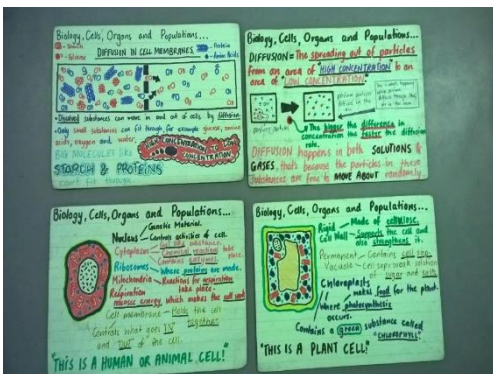 Biology, Cells, Organs and Populations...
- Starch
- Glucose
DIFFUSION IN CELL MEMBRANES
- Protein
- Amino Acids
- Dissolved substances can move in and out of cells by diffusion.
- Only small substances can fit through, for example glucose, amino
acids, oxygen and water.
BIG MOLECULES like
STARCH & PROTEINS
can't fit through.
HIGH CONCENTRATION TO LOW
CONCENTRATION
Biology, Cells, Organs and Populations...
DIFFUSION = The spreading out of particles
from an area of "HIGH CONCENTRATION to an
area of LOW CONCENTRATION"
The bigger the difference in
concentration the faster the diffusion
rate.
DIFFUSION happens in both SOLUTIONS &
GASES, that's because the particles in these
substances are free to MOVE ABOUT randomly.
Biology, Cells, Organs and Populations...
Genetic Material.
Nucleus - Controls activities of cell.
Cytoplasm - Gel like substance.
Chemical reactions take place.
Contains enzymes.
Ribosomes - Where proteins are made.
Mitochondria - Reactions for respiration
take place.
Respiration
releases energy, which makes the cell work
Cell membrane - Holds the cell
together
Controls what goes "IN"
and "OUT" of the cell.
"THIS IS A HUMAN OR ANIMAL CELL!"
Biology, Cells, Organs and Populations...
Rigid Cell Wall - Made of cellulose.
Supports the cell and
also strengthens it.
Permanent Vacuole - Contains cell sap.
Cell sap = weak solution
of sugar and salts
Chloroplasts
makes food for the plant.
Where photosynthesis
occurs.
Contains a green substance called
"CHLOROPHYLL"
"THIS IS A PLANT CELL!"